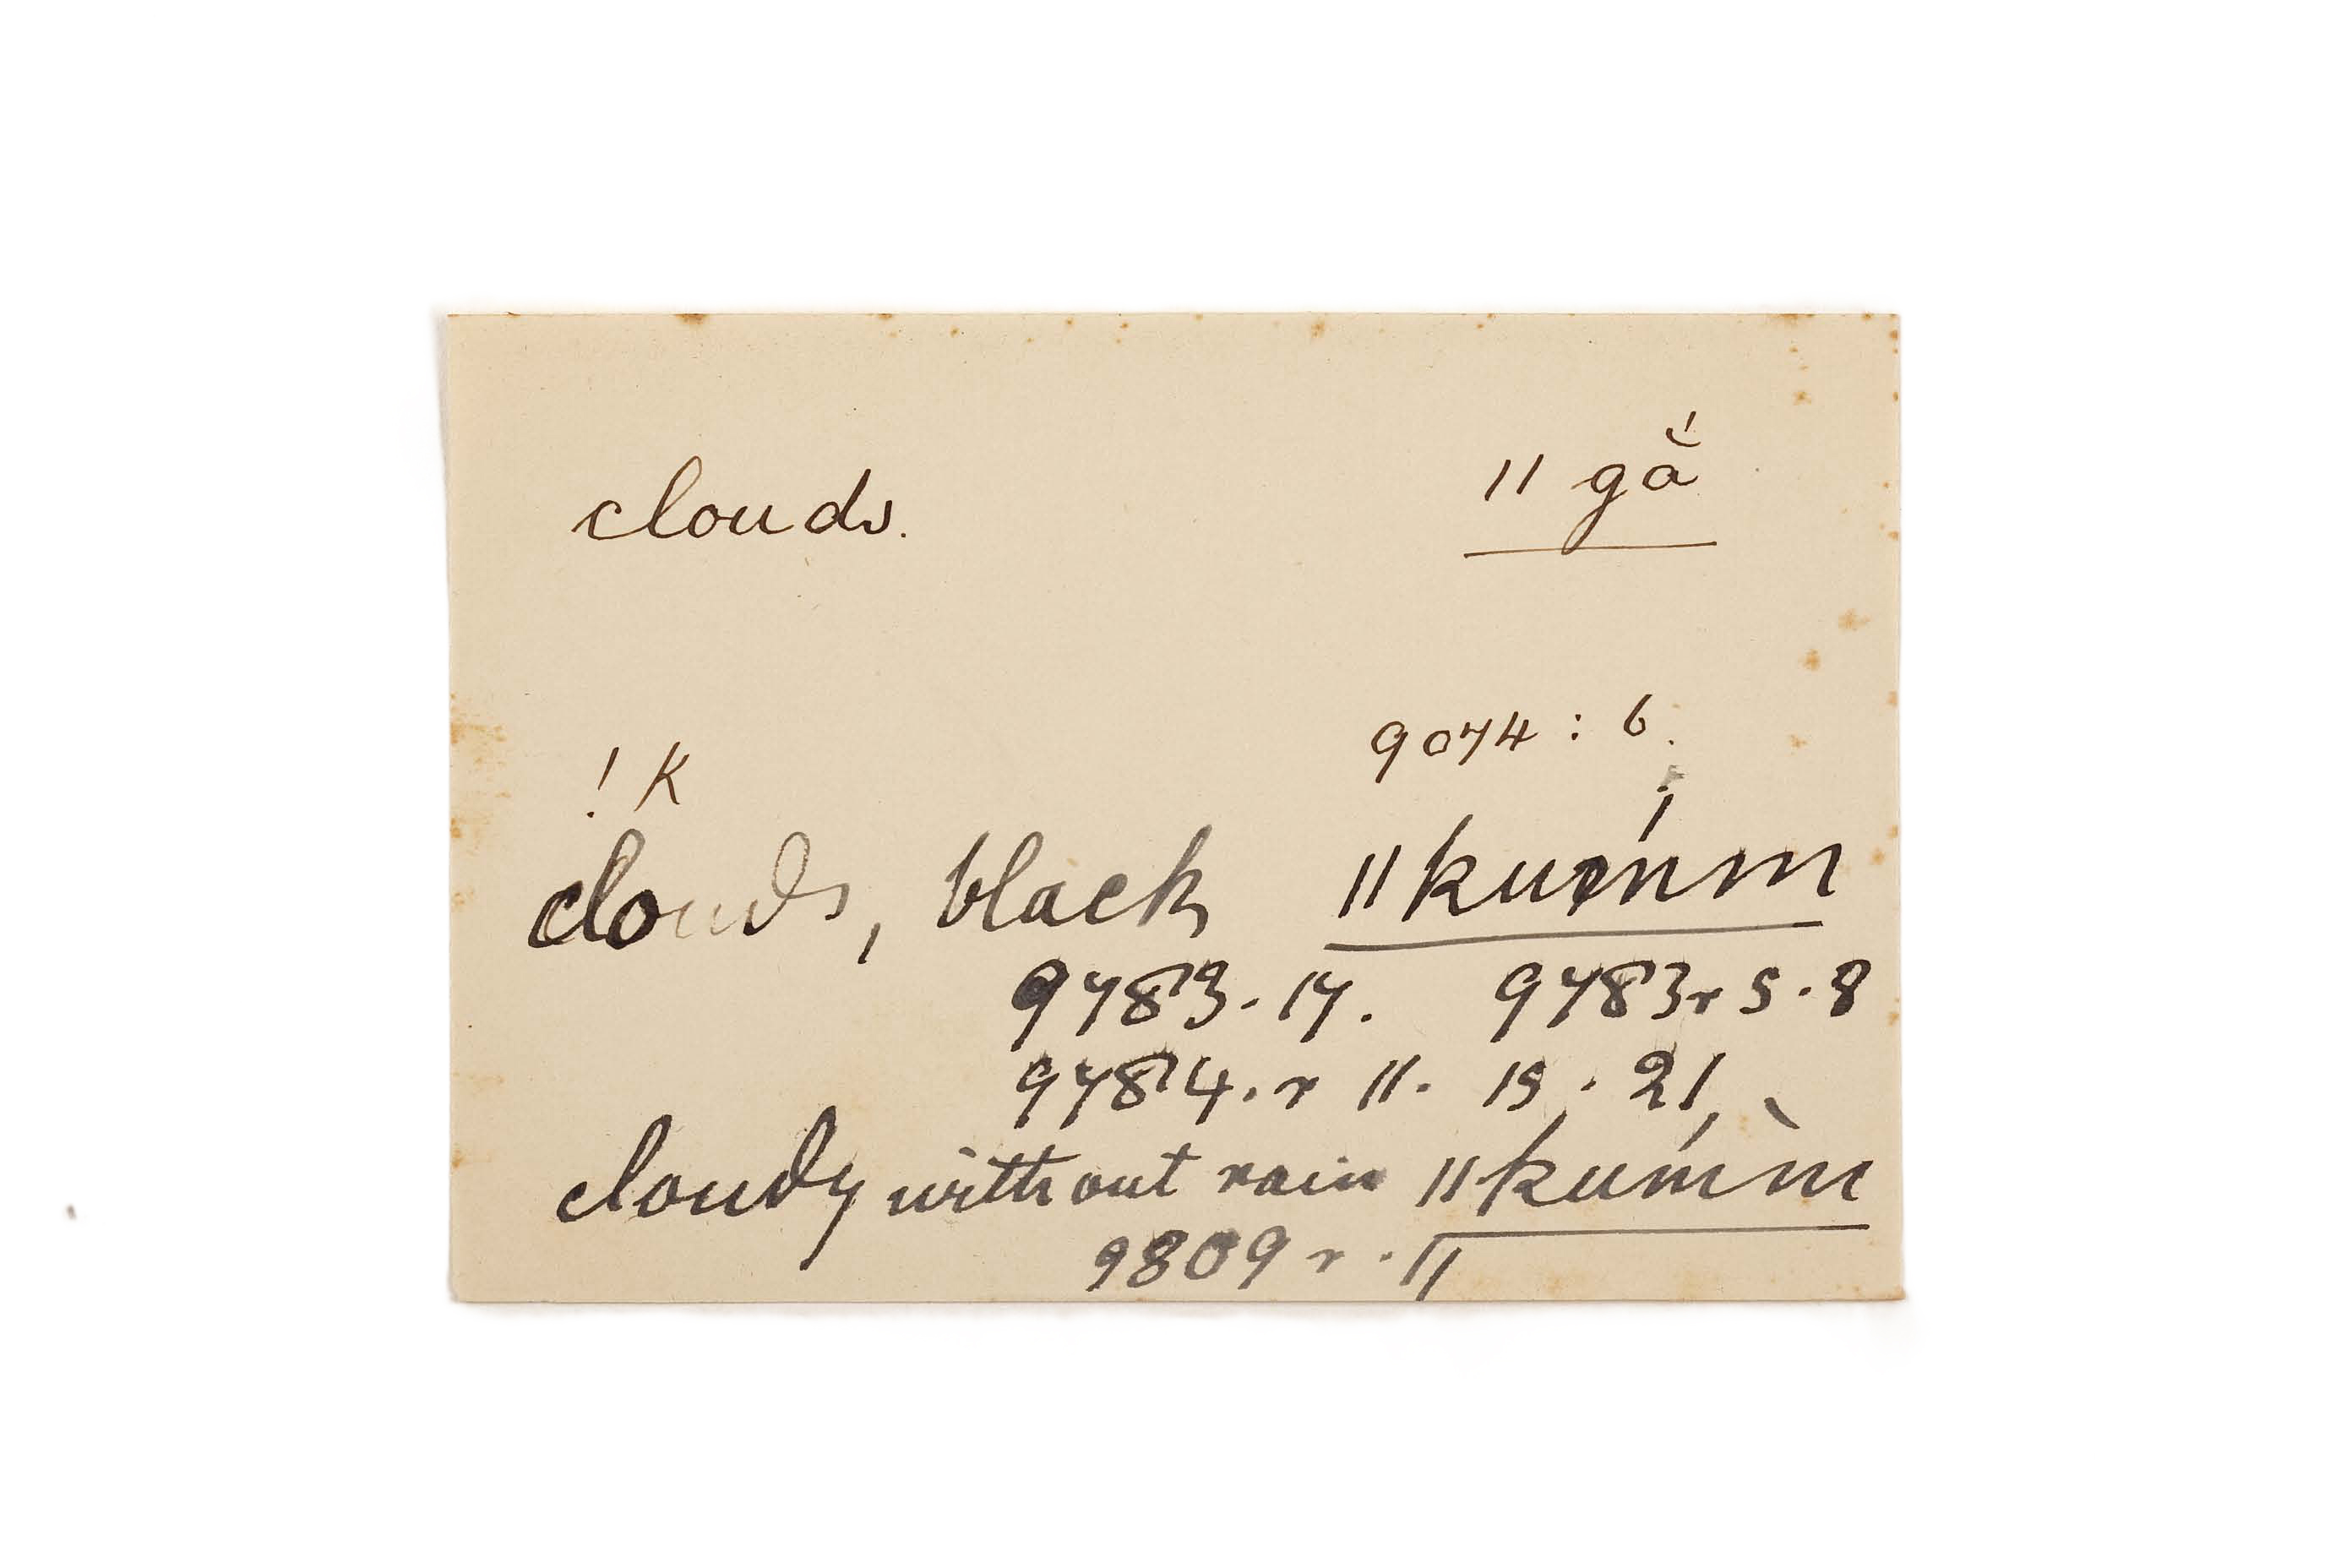 clouds. ǁ gắ
9074 : 6.
! K
clouds, black ǁkuḿm
9783. 17. 9783r 5. 8
9784. r 11. 15. 21
cloudy without rain ǁkuḿm̀
9809 r. 11